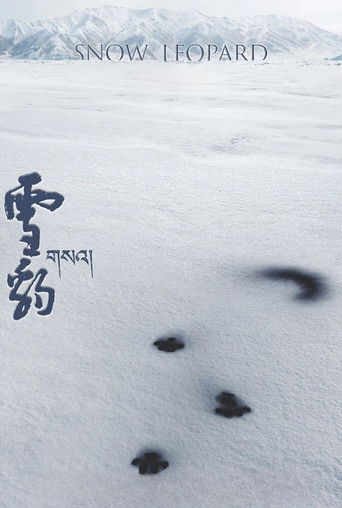 SNOW LEOPARD
雪豹
གསའ།